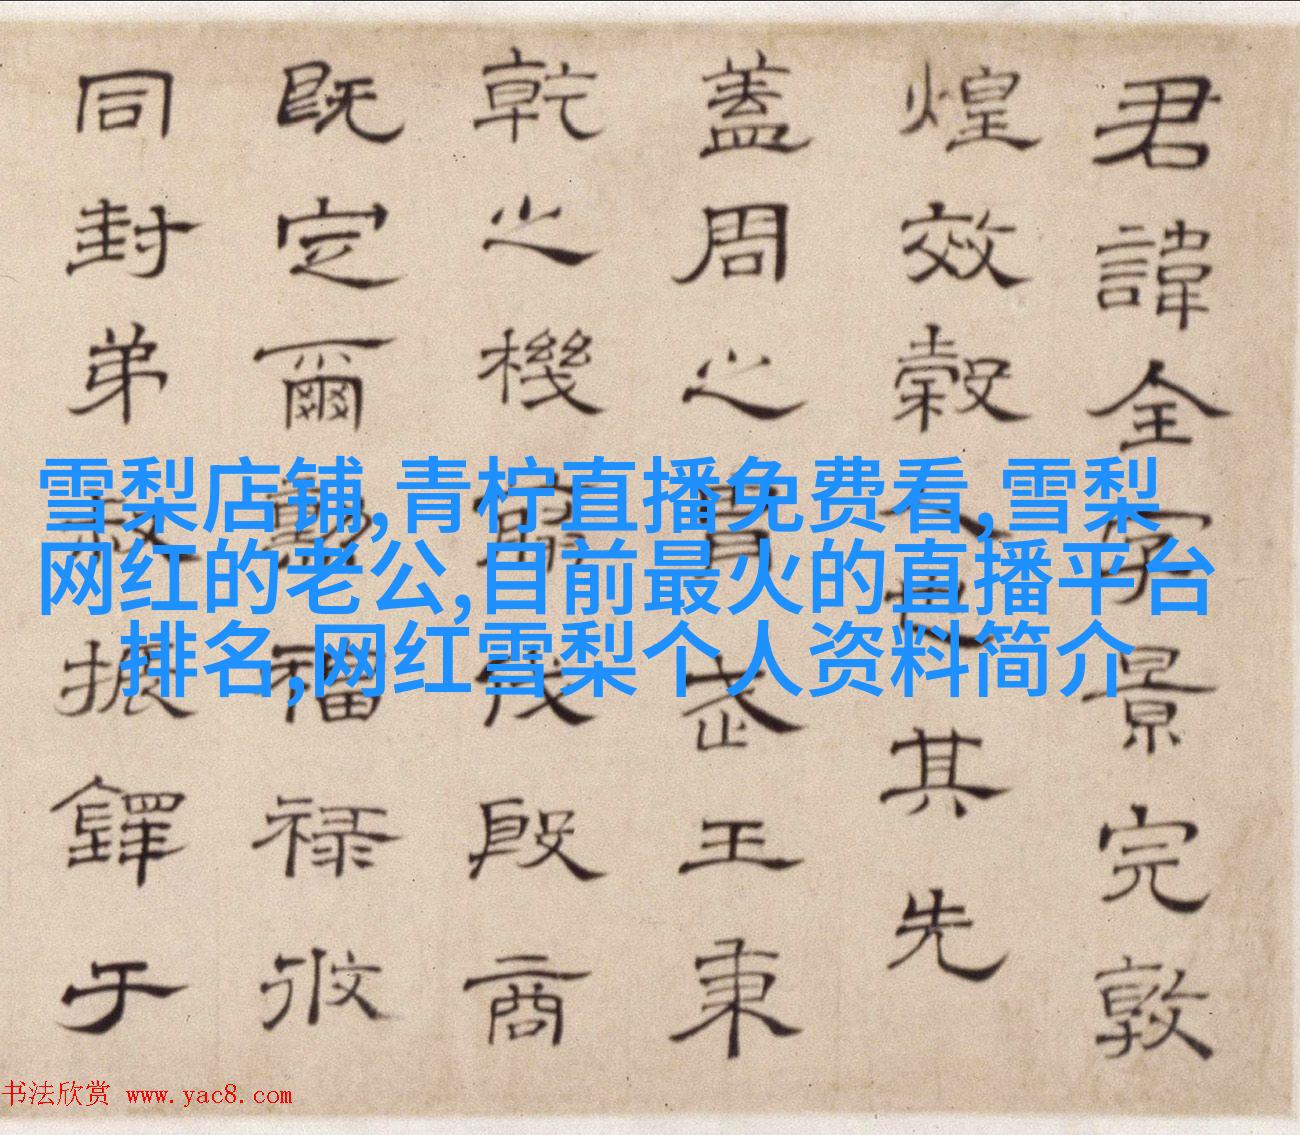 君諱全字景完敦
煌效穀人也其先
蓋周之胄武王秉
乾之機翦伐殷商
既定爾勳福祿攸
同封弟叔振鐸于
雪梨店铺,青柠直播免费看,雪梨
网红的老公,目前最火的直播平台
排名,网红雪梨个人资料简介
书法欣赏 www.yac8.com